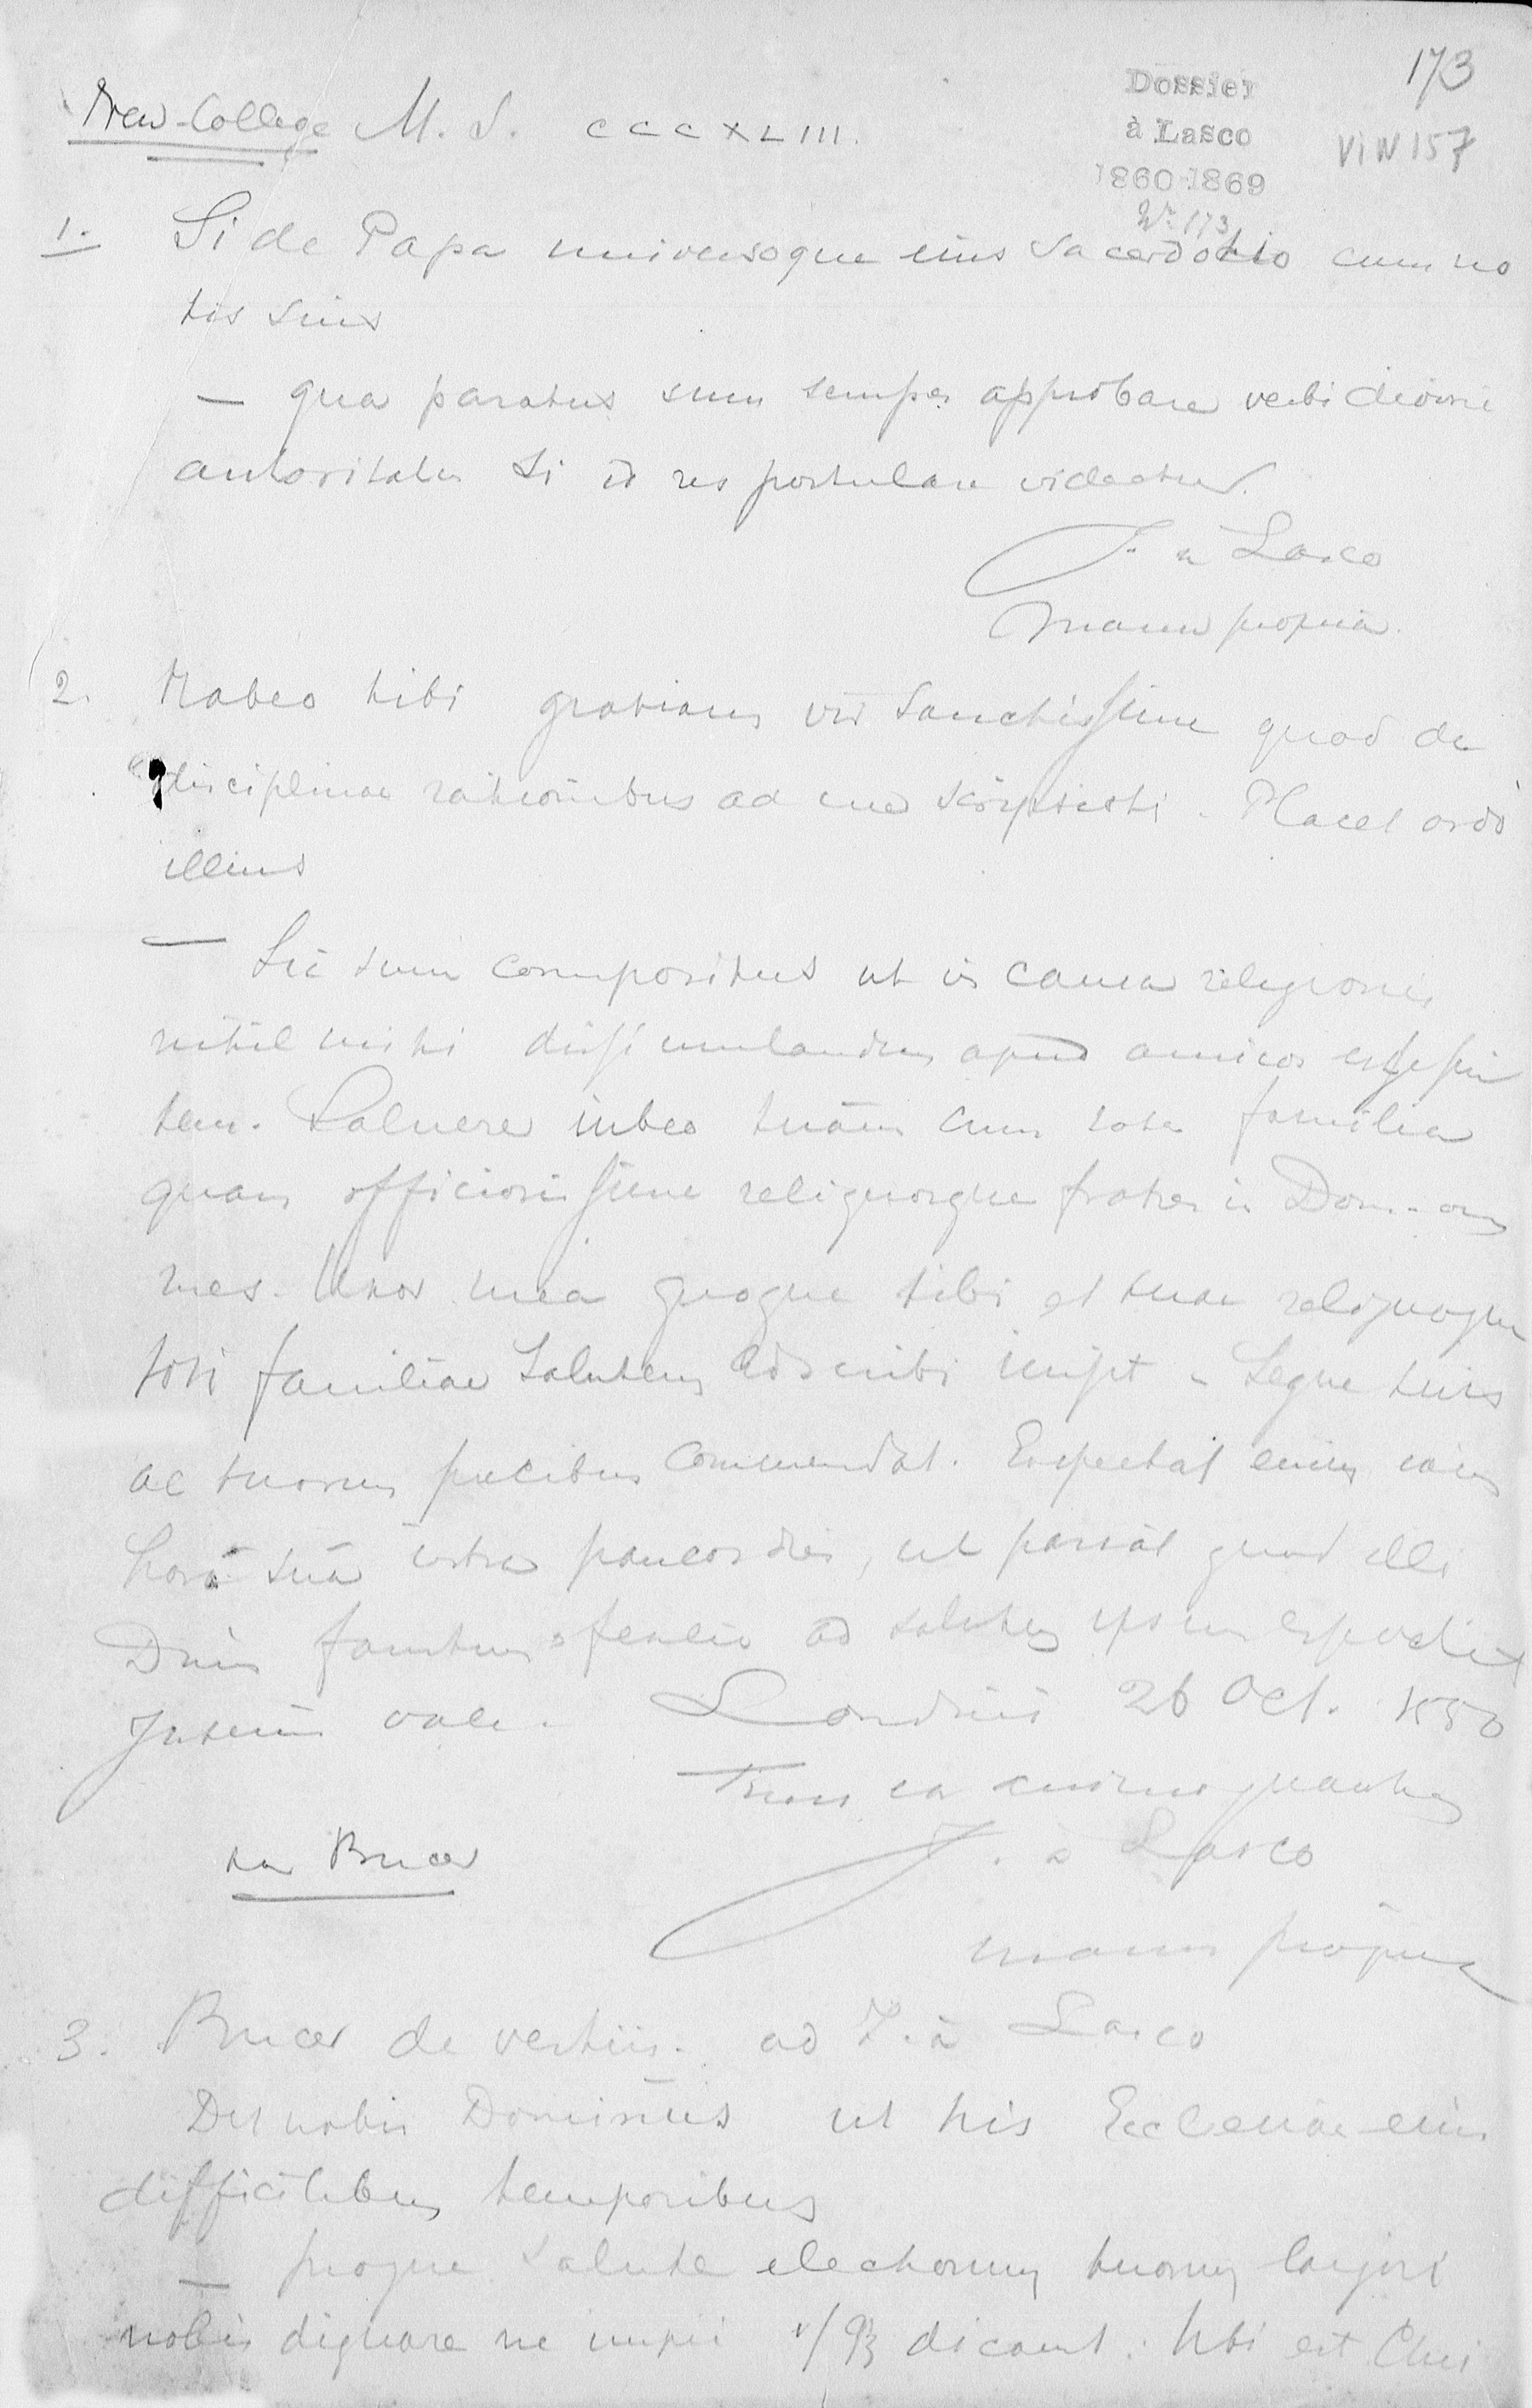 173
Dossier
à Lasco
1860-1869
Nr. 173
VI N 157
New-College M. S. CCCXLIII.
1. Si de Papa universoque eius sacerdotio cum no
tis suis
— qua paratus sum semper approbare verbi divini
autoritate si id res postulare videatur.
J. a Lasco
manu propria.
2. Habeo tibi gratiam vir sanctissime quod de
disciplinae rationibus ad me scripsisti. Placet ordo
illius
— Sic sum compositus ut in causa religionis
nihil mihi dissimulandum apud amicos esse pu
tem. Salvere iubeo tuam cum tota familia
quam officiosissime reliquosque fratres in Dom. om
nes. Uxor mea quoque tibi et tuae reliquaeque
toti familiae salutem adscribi iussit. Seque tuis
ac tuorum precibus commendat. Expectat enim iam
horā suā intra paucos dies, ut pariat quod illi
Dnūs faustum ad salutem
Interim vale. Londini 26 Oct. 1550
Tuus ex animo
J. à Lasco
manu propria
an Bucer
3. Bucer de vestiis. ad J. à Lasco
Det nobis Dominus ut his Ecclesiae eius
difficilibus temporibus
— proque salute electorum tuorum largiri
nobis dignare ne impii dicant: Ubi est Chri